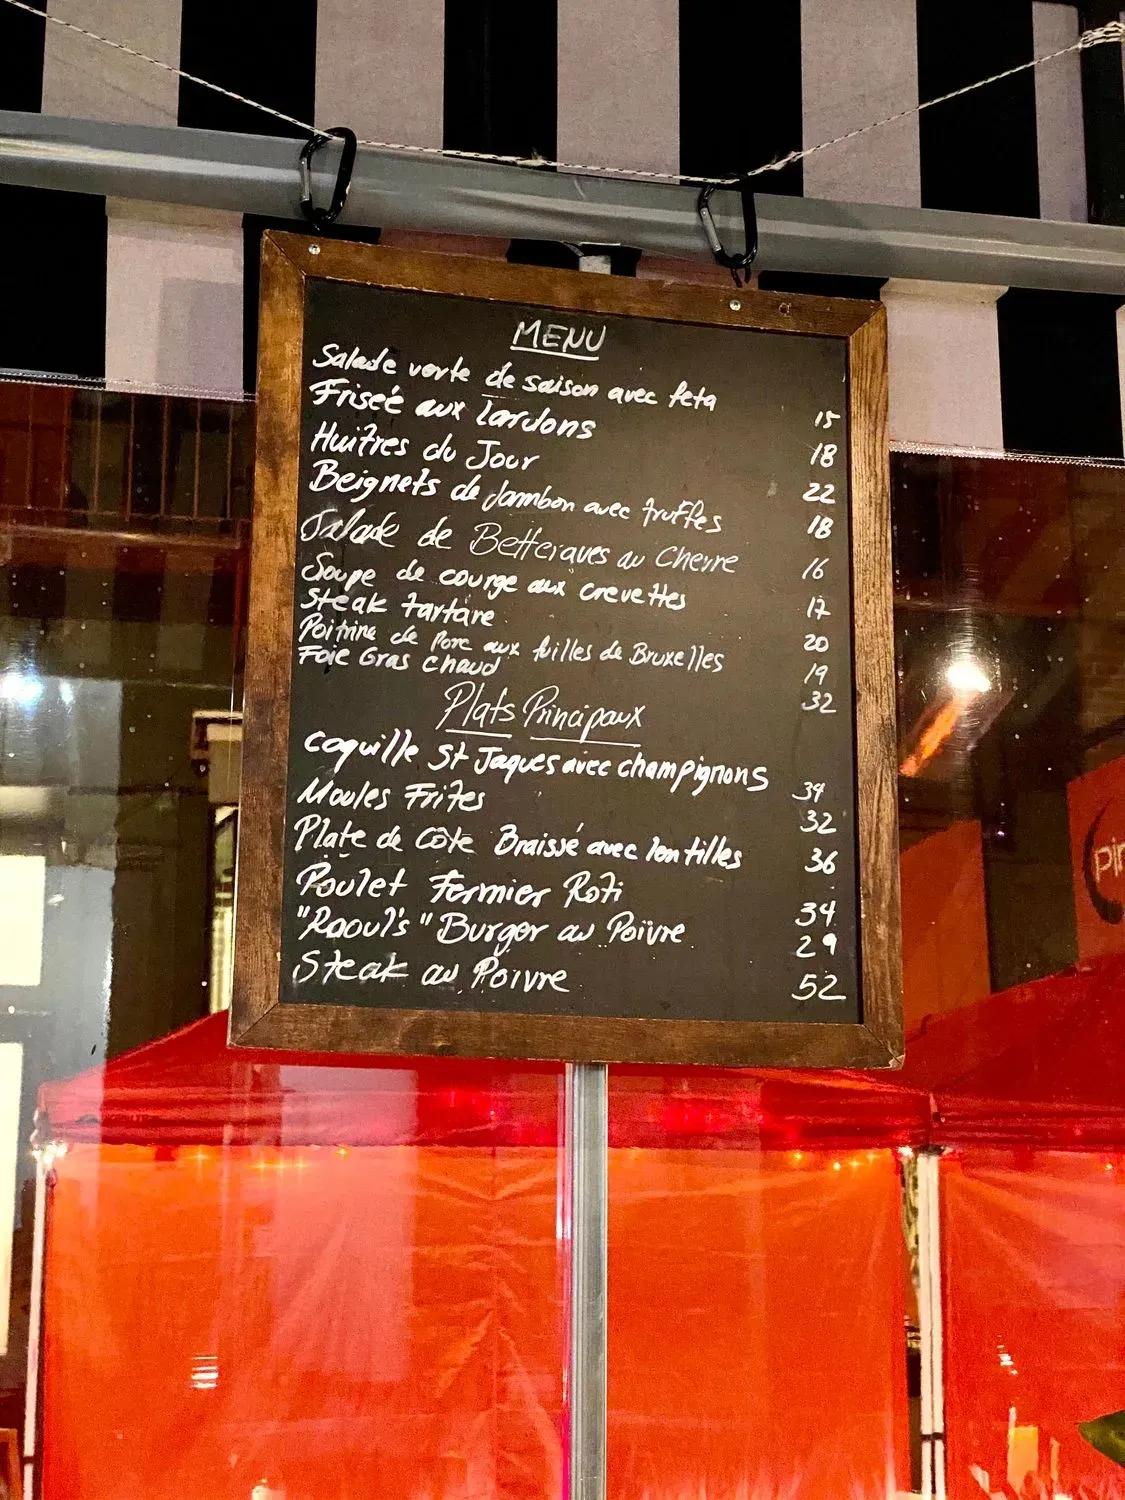 MENU
Salade verte de saison avec feta 15
Friseé aux lardons 18
Huitres du Jour 22
Beignets de Jambon avec truffes 18
Salade de Betteraves au Chevre 16
Soupe de courge aux crevettes 17
Steak tartare 20
Poitrine de Porc aux fuilles de Bruxelles 19
Foie Gras chaud 32
Plats Principaux
Coquille St Jaques avec champignons 34
Moules Frites 32
Plate de Côte Braissé avec lentilles 36
Poulet Fermier Roti 34
"Raoul's" Burger au Poivre 29
Steak au Poivre 52